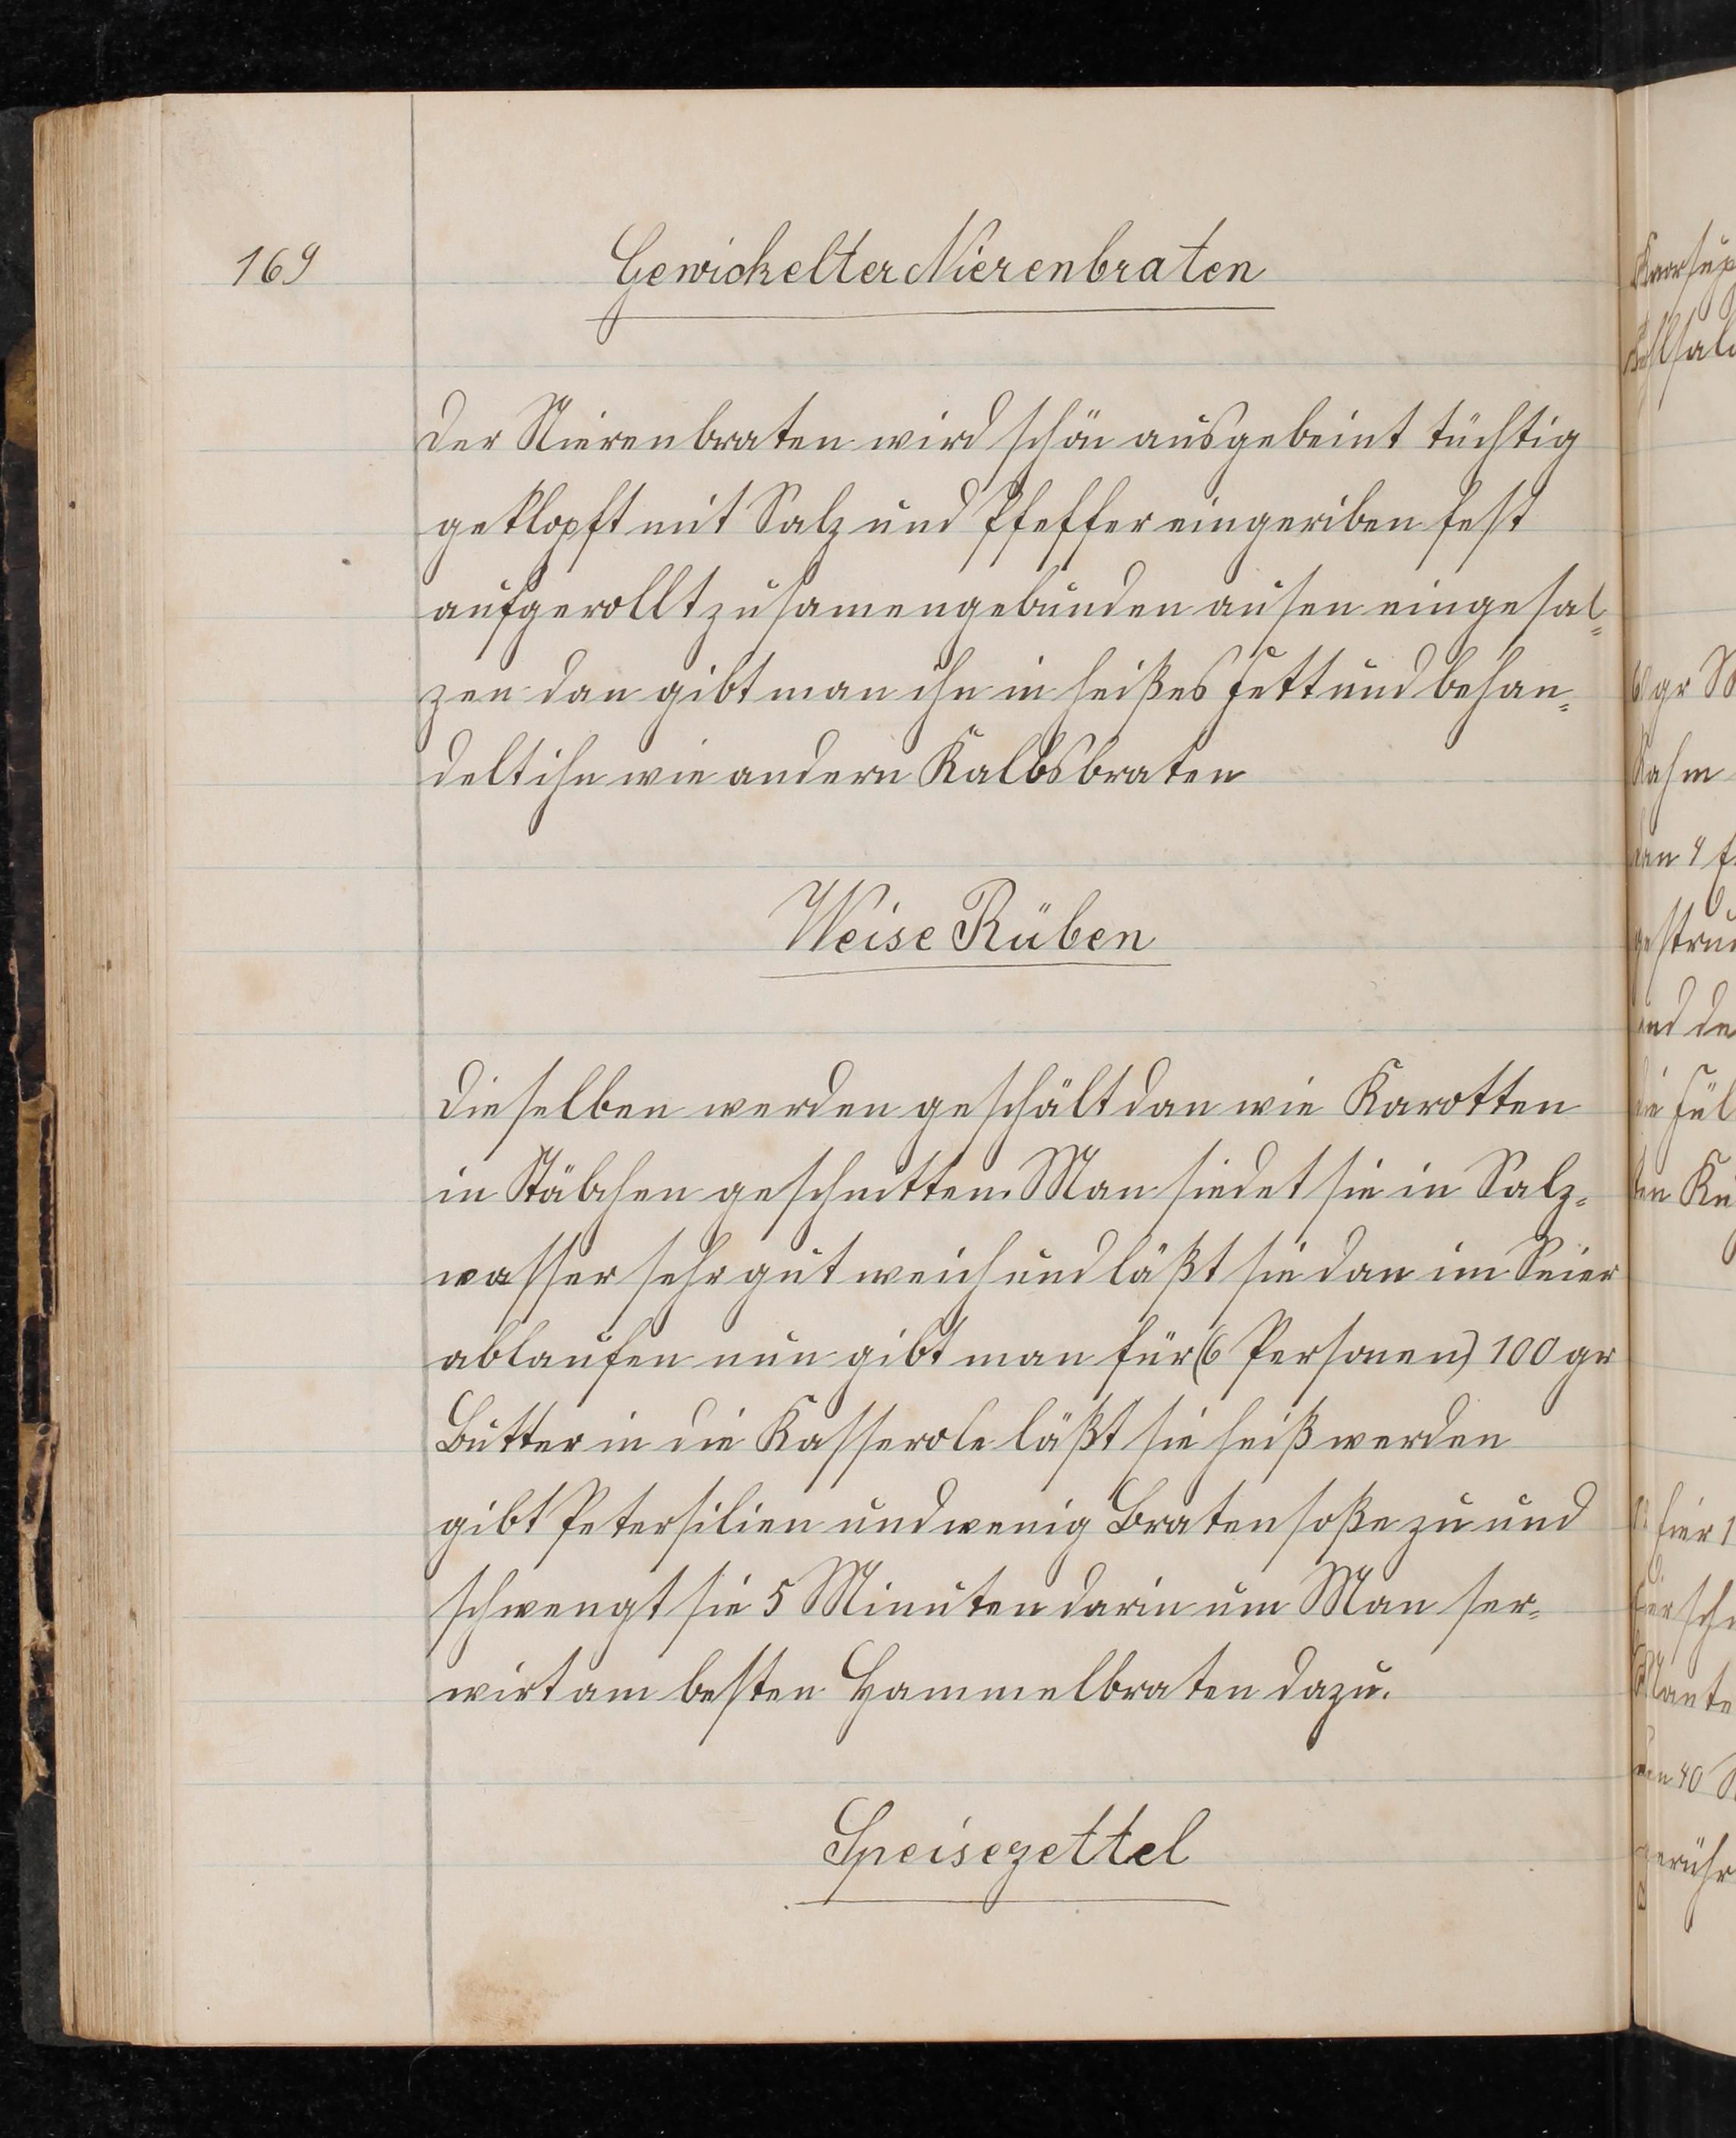 169
Gewickelter Nierenbraten
Der Nierenbraten wird schön ausgebeint tüchtig
geklopft mit Salz und Pfeffer eingeriben fest
aufgerollt zusamengebunden ausen eingesal=
zen dan gibt man ihn in heißes Fett und behan=
delt ihn wie andern Kalbsbraten
Weise Rüben
Dieselben werden geschält dan wie Karotten
in Stäbchen geschnitten. Man siedet sie in Salz=
wasser sehr gut weich und läßt sie dan im Seier
ablaufen nun gibt man für (6 Personen) 100 gr
Butter in die Kasserole läßt sie heiß werden
gibt Petersilien und wenig Bratensoße zu und
schwengt sie 5 Minuten darin um Man ser=
wirt am besten Hammelbraten dazu.
Speisezettel